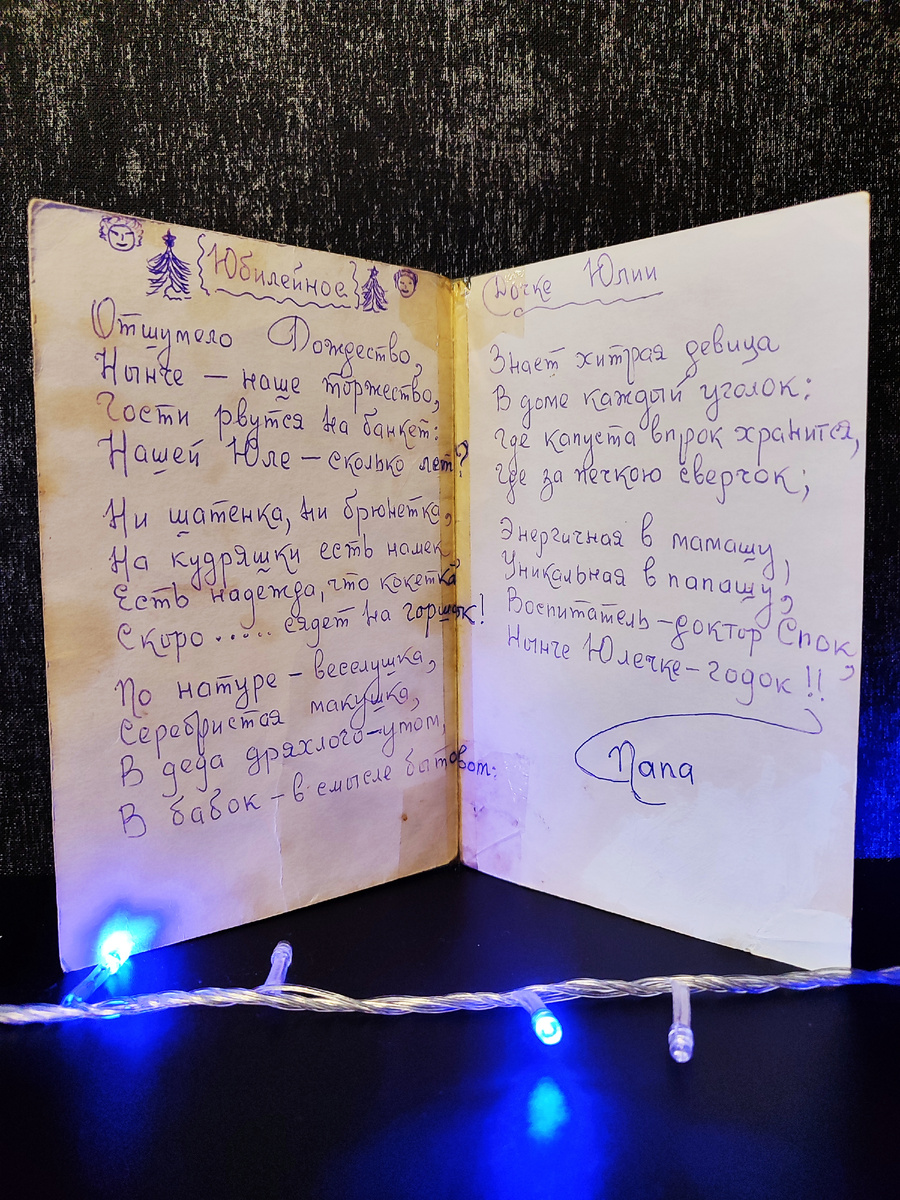 Юбилейное
Отшумело Рождество,
Нынче — наше торжество,
Гости рвутся на банкет:
Нашей Юле — сколько лет?
Ни шатенка, ни брюнетка,
На кудряшки есть намек
Есть надежда, что кокетка,
Скоро ..... сядет на горшок!
По натуре — веселушка,
Серебристая макушка,
В деда дряхлого — умом,
В бабок — в смысле бытовом:
Дочке Юлии
Знает хитрая девица
В доме каждый уголок:
Где капуста впрок хранится,
Где за печкою сверчок;
Энергичная в мамашу,
Уникальная в папашу,
Воспитатель — доктор Спок,
Нынче Юлечке — годок!!
Папа